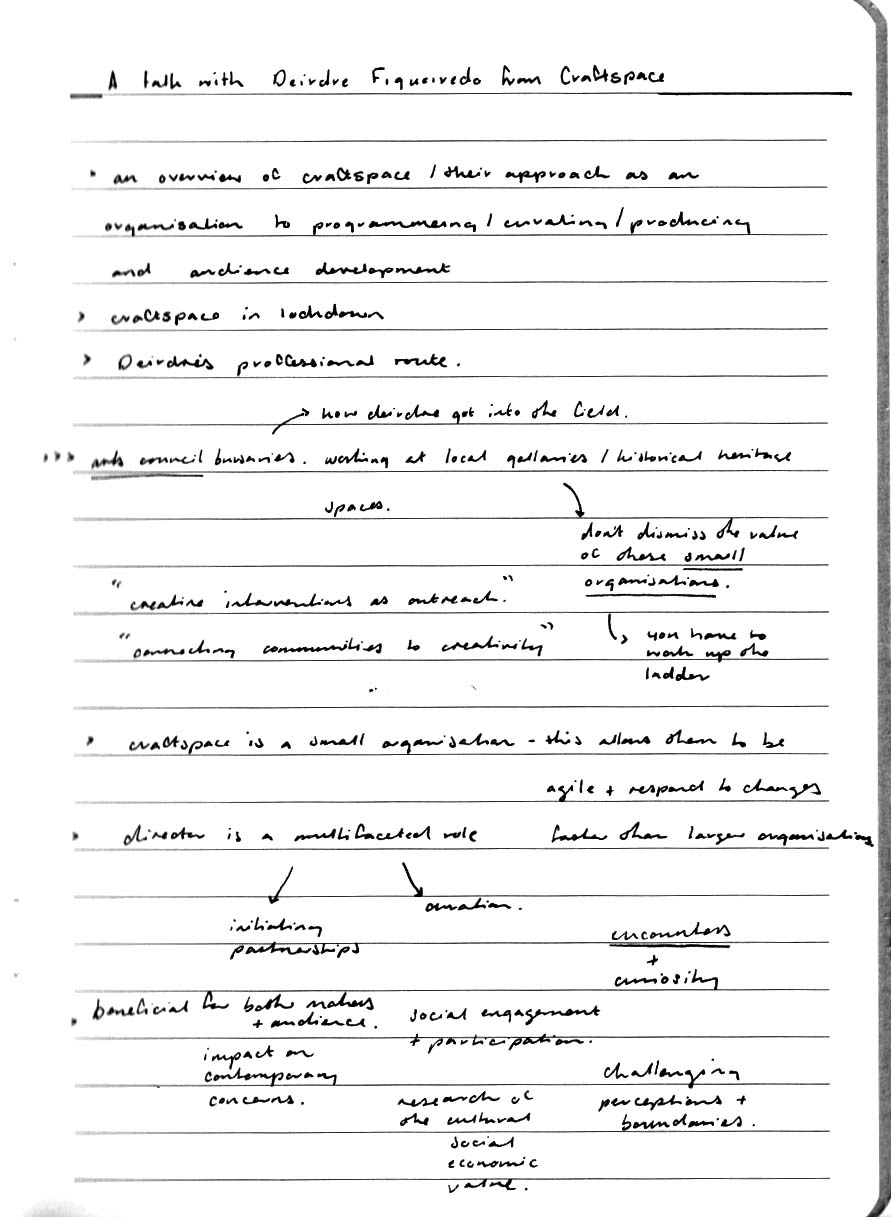 A talk with Deirdre Figueiredo from Craftspace
• an overview of craftspace / their approach as an
organisation to programmering / curating / producing
and audience development
> craftspace in lockdown
> Deirdre's proffessional route.
→ how deirdre got into the field.
>>> arts council bursaries. working at local gallaries / historical heritage
spaces.
don't dismiss the value
of these small
organisations.
"creative interventions as outreach."
"connecting communities to creativity"
↳ you have to
work up the
ladder
> craftspace is a small organisation - this allows them to be
agile + respond to changes
faster than larger organisations
> director is a multifaceted role
initiating
partnerships
curation.
encounters
+
curiosity
> beneficial for both makers
+ audience.
social engagement
+ participation.
impact on
contemporary
concerns.
research of
the cultural
social
economic
value.
challenging
perceptions +
boundaries.